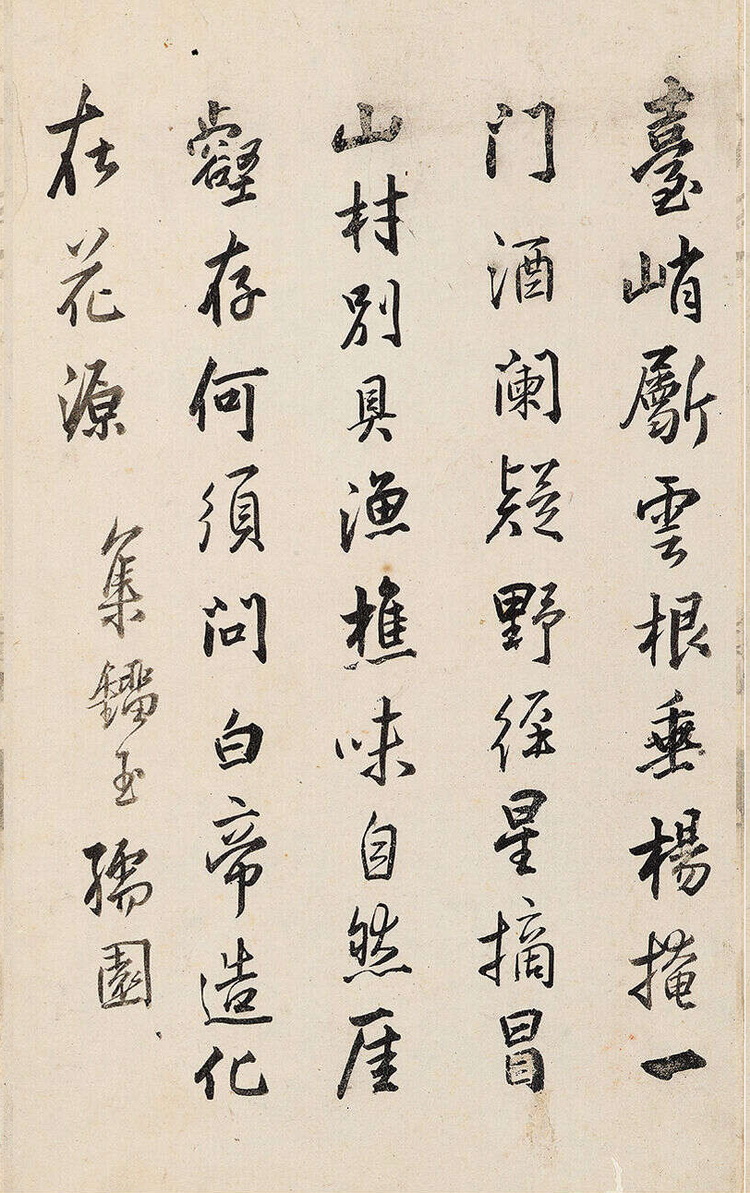 臺峭斸雲根垂楊掩一
門酒闌疑野徑星摘冒
山村別具漁樵味自然厓
壑存何須問白帝造化
在花源
集鎦玉孺園